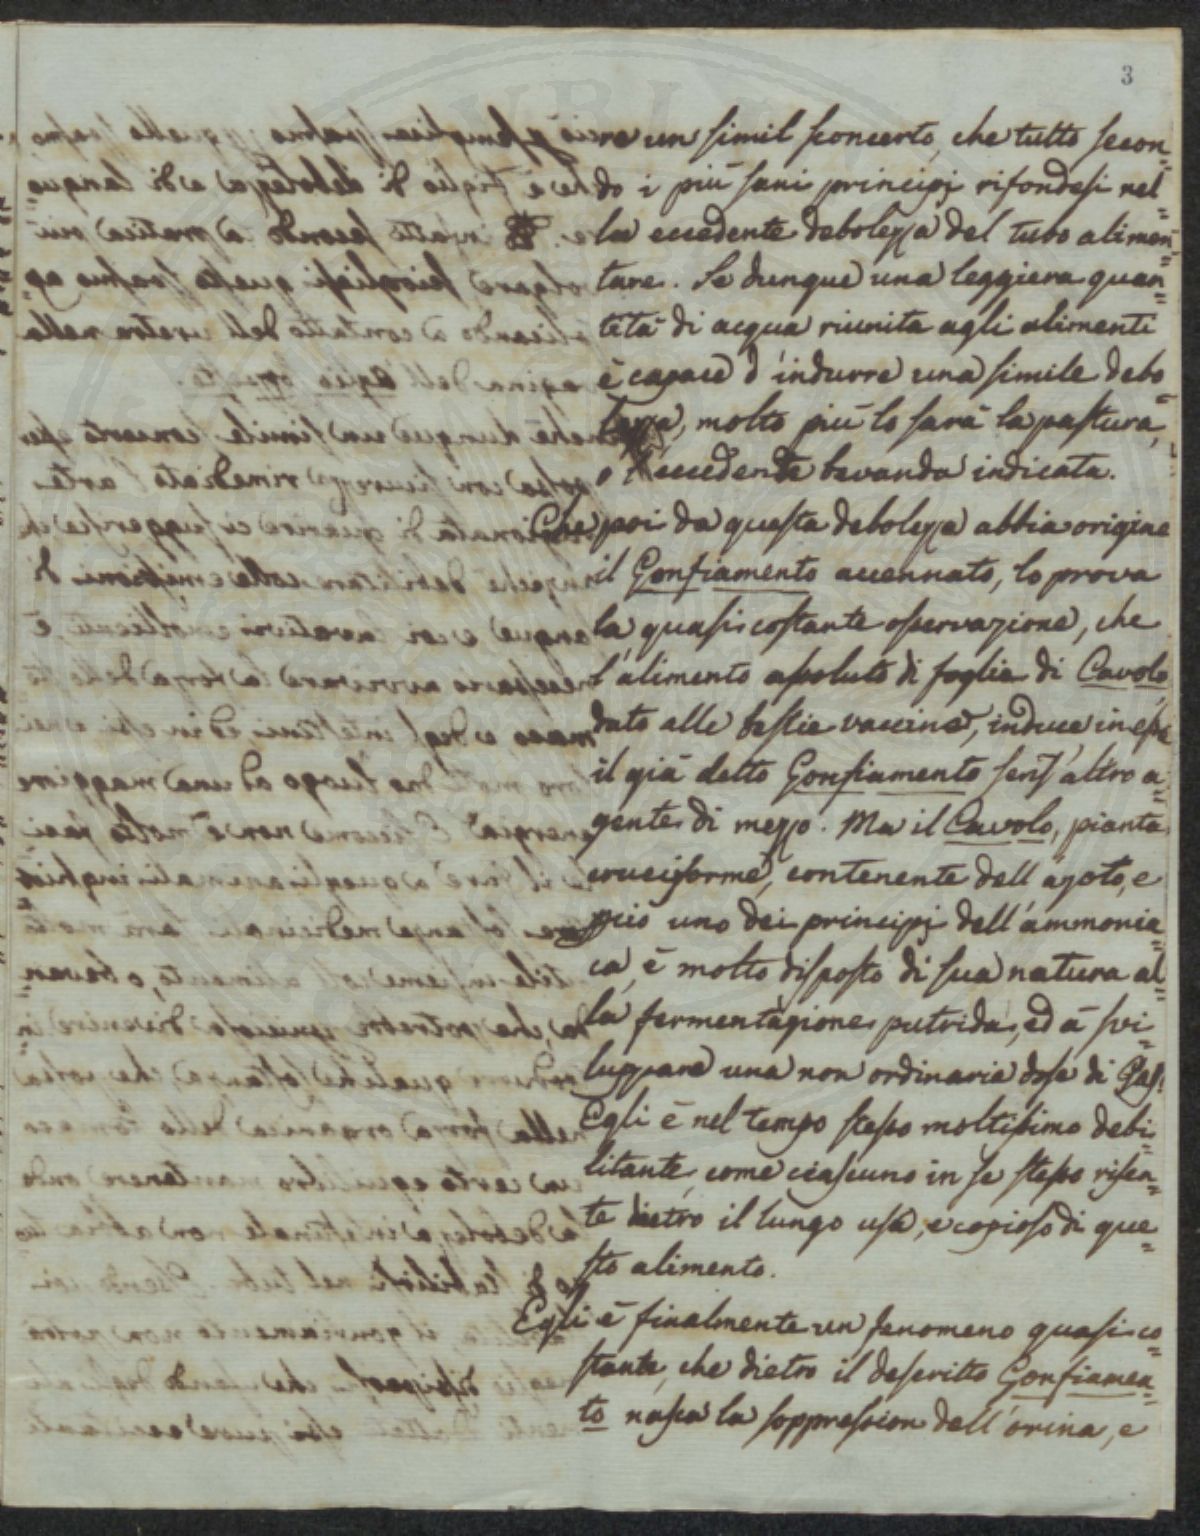 3
re un simil sconcerto, che tutto secon=
do i più sani principj rifondesi nel=
la eccedente debolezza del tubo alimen=
tare. Se dunque una leggiera quan=
tità di acqua riunita agli alimenti
è capace d'indurre una simile debo=
lezza, molto più lo sarà la pastura,
o eccedente bevanda indicata.
Che poi da questa debolezza abbia origine
il Gonfiamento accennato, lo prova
la quasi costante osservazione, che
l'alimento assoluto di foglia di Cavolo
dato alle bestie vaccine, induce in esse
il già detto Gonfiamento senz'altro a=
gente di mezzo. Ma il Cavolo, pianta
cruciforme, contenente dell'azoto, e
più uno dei principj dell'ammonia=
ca, è molto disposto di sua natura al=
la fermentazione putrida, ed à svi=
luppare una non ordinaria dose di Gas.
Egli è nel tempo stesso moltissimo debi=
litante, come ciascuno in se stesso risen=
te dietro il lungo uso, e copioso di que=
sto alimento.
Egli è finalmente un fenomeno quasi co=
stante, che dietro il descritto Gonfiamen=
to nasca la soppression dell'orina, e